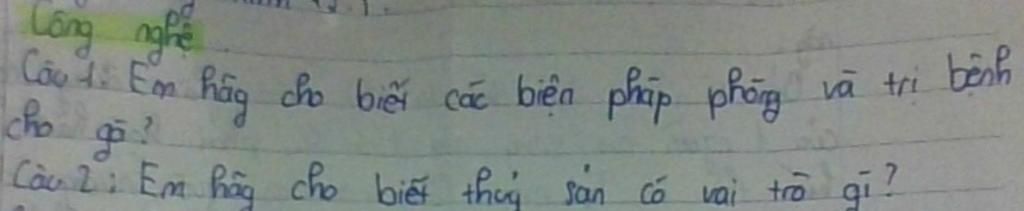 Công nghệ
Câu 1: Em hãy cho biết các biện pháp phòng và trị bệnh
cho gà?
Câu 2: Em hãy cho biết thuỷ sản có vai trò gì?